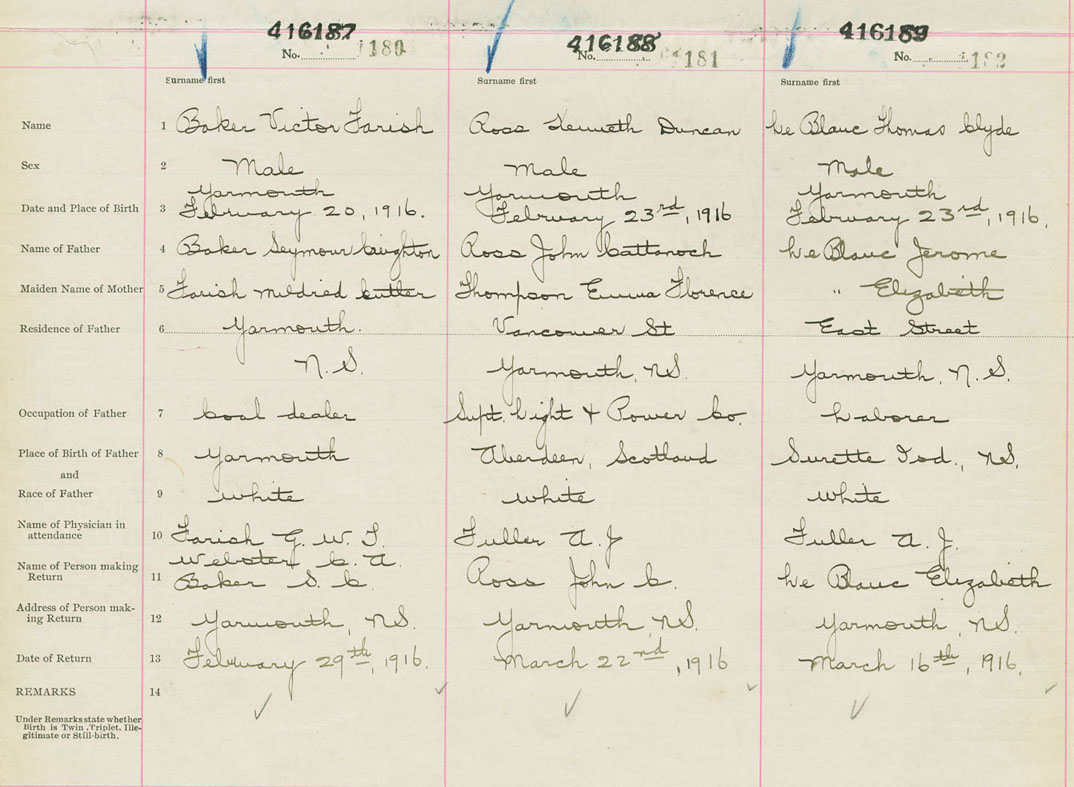 416187 416188 416189
No. 1180 No. 1181 No. 1182
Surname first Surname first Surname first
Name 1 Baker Victor Farish Ross Kenneth Duncan Le Blanc Thomas Clyde
Sex 2 Male Male Male
Yarmouth Yarmouth Yarmouth
Date and Place of Birth 3 February 20, 1916. February 23rd, 1916 February 23rd, 1916.
Name of Father 4 Baker Seymour Creighton Ross John Cattanoch Le Blanc Jerome
Maiden Name of Mother 5 Farish Mildred Cutler Thompson Emma Florence " Elizabeth
Residence of Father 6 Yarmouth. Vancouver St East Street
N.S. Yarmouth, NS. Yarmouth, N.S.
Occupation of Father 7 Coal dealer Supt. Light & Power Co. Laborer
Place of Birth of Father 8 Yarmouth Aberdeen, Scotland Surette Isd., NS.
and
Race of Father 9 white white white
Name of Physician in
attendance 10 Farish G. W. T. Fuller A. J Fuller A. J.
Webster C. A.
Name of Person making
Return 11 Baker S. C. Ross John C. Le Blanc Elizabeth
Address of Person mak-
ing Return 12 Yarmouth, NS. Yarmouth, NS. Yarmouth, NS.
Date of Return 13 February 29th, 1916. March 22nd, 1916 March 16th, 1916.
REMARKS 14
Under Remarks state whether
Birth is Twin, Triplet, Ille-
gitimate or Still-birth.